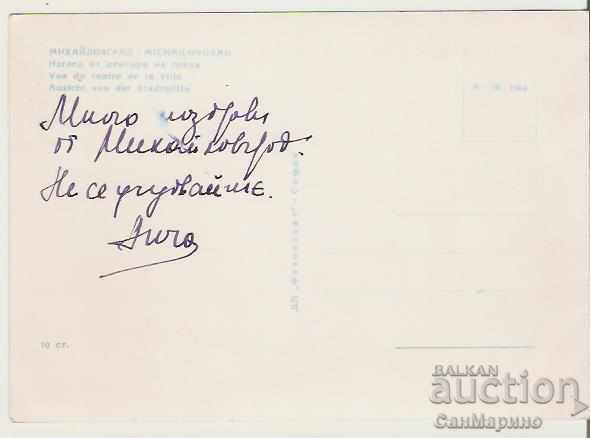 МИХАЙЛОВГРАД - MICHAILOVGRAD
Изглед от центъра на града
Vue du centre de la ville
Много поздрави
от Михайловград.
Не се учудвайте.
ДП „Фотоиздат" - София
10 ст.
BALKAN
auction
СанМарино